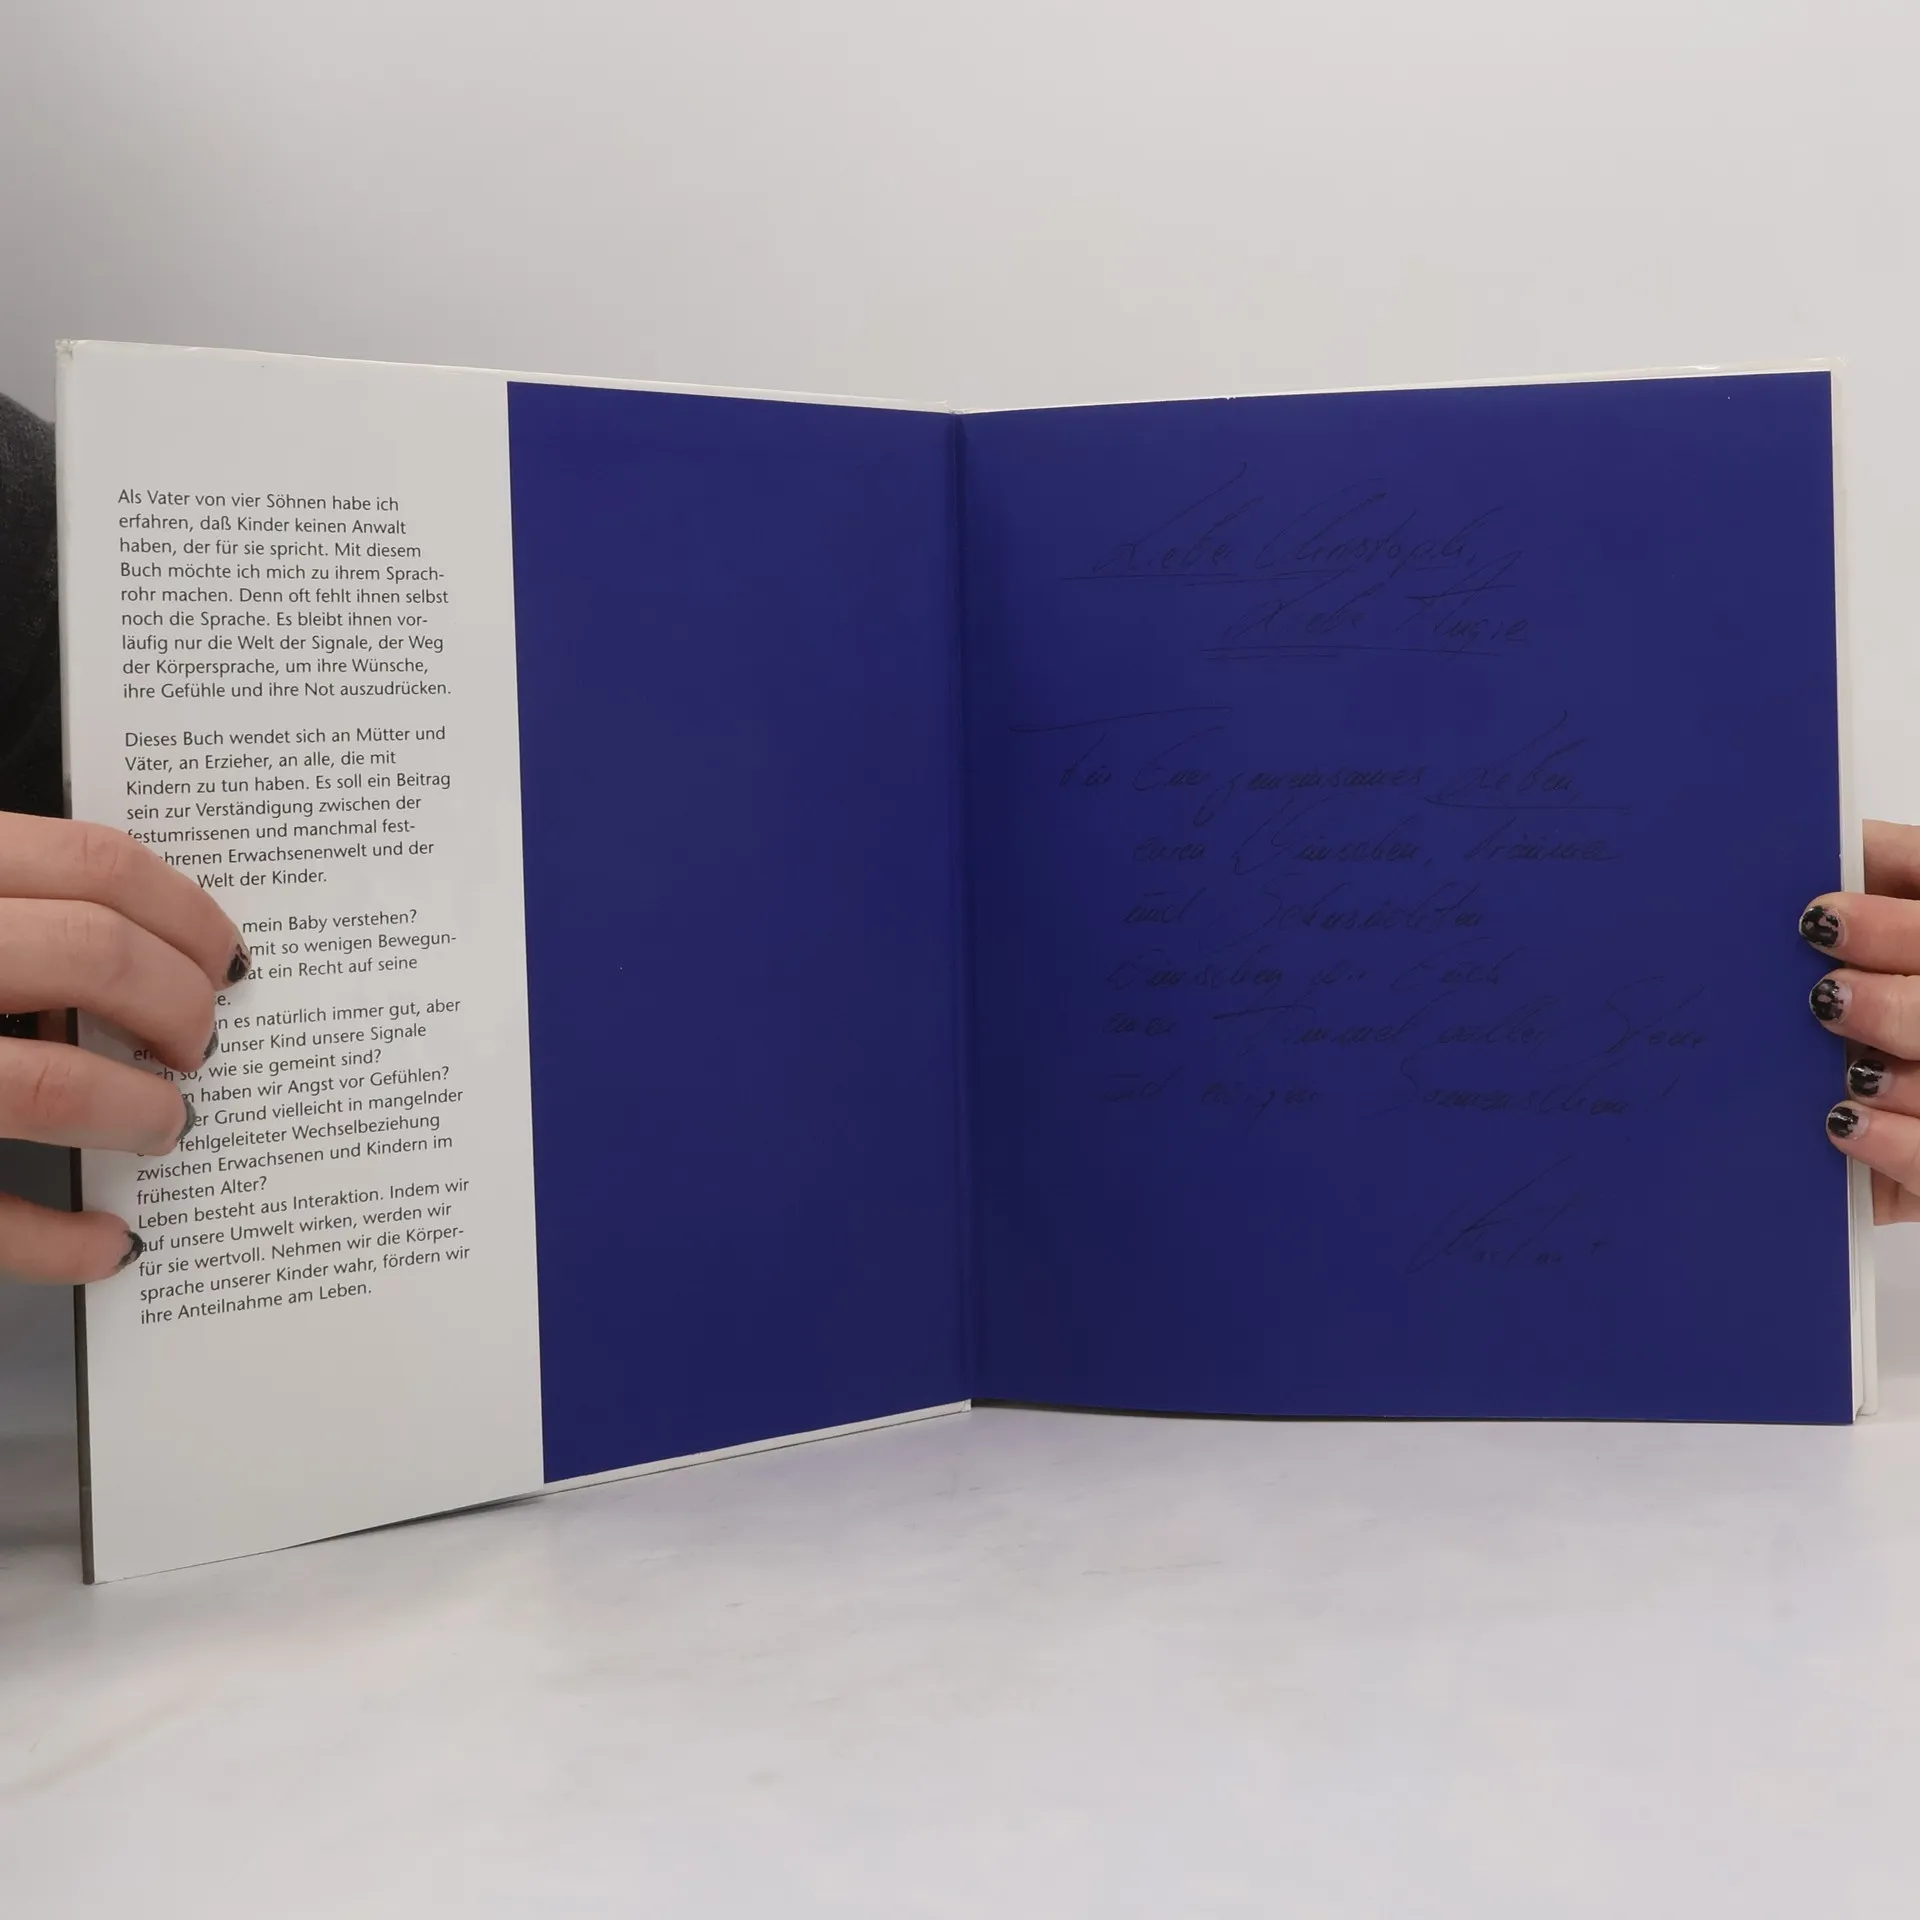 Als Vater von vier Söhnen habe ich
erfahren, daß Kinder keinen Anwalt
haben, der für sie spricht. Mit diesem
Buch möchte ich mich zu ihrem Sprach-
rohr machen. Denn oft fehlt ihnen selbst
noch die Sprache. Es bleibt ihnen vor-
läufig nur die Welt der Signale, der Weg
der Körpersprache, um ihre Wünsche,
ihre Gefühle und ihre Not auszudrücken.
Dieses Buch wendet sich an Mütter und
Väter, an Erzieher, an alle, die mit
Kindern zu tun haben. Es soll ein Beitrag
sein zur Verständigung zwischen der
festumrissenen und manchmal fest-
hrenen Erwachsenenwelt und der
Welt der Kinder.
mein Baby verstehen?
mit so wenigen Bewegun-
at ein Recht auf seine
e.
n es natürlich immer gut, aber
unser Kind unsere Signale
so, wie sie gemeint sind?
haben wir Angst vor Gefühlen?
er Grund vielleicht in mangelnder
fehlgeleiteter Wechselbeziehung
zwischen Erwachsenen und Kindern im
frühesten Alter?
Leben besteht aus Interaktion. Indem wir
auf unsere Umwelt wirken, werden wir
für sie wertvoll. Nehmen wir die Körper-
sprache unserer Kinder wahr, fördern wir
ihre Anteilnahme am Leben.
Lieber Christoph,
Liebe
Für Euer gemeinsames Leben,
euren Wünschen, Träumen
und Sehnsüchten
wünschen wir Euch
einen Himmel voller
und ewigen Sonnenschein!